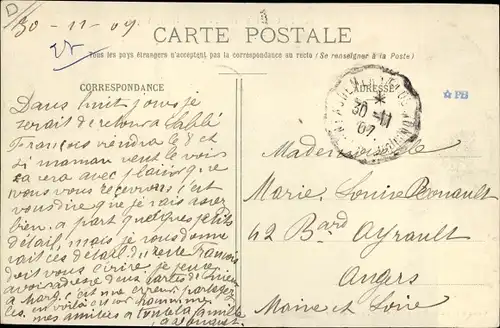 30-11-09
CARTE POSTALE
Tous les pays étrangers n'acceptent pas la correspondance au recto (Se renseigner à la Poste)
CORRESPONDANCE
ADRESSE
Dans huit jours je
serait de retour a Sablé
François viendra le 8 et
si maman veut le voir
sa sera avec plaisir que
nous vous recevrons c'est
vous dire que je vais assez
bien. a part quelques petits
détail, mais je vous donne
rait ces détail du reste François
doit vous écrire je
avoir adressé deux cartes
a Marg. c'est une erreur partagez
les en voilà
mes amitiés a toute la famille
30 -11
07
PB
Mademoiselle
Marie Louise Renault
42 Bard Ayrault
Angers
Maine et Loire